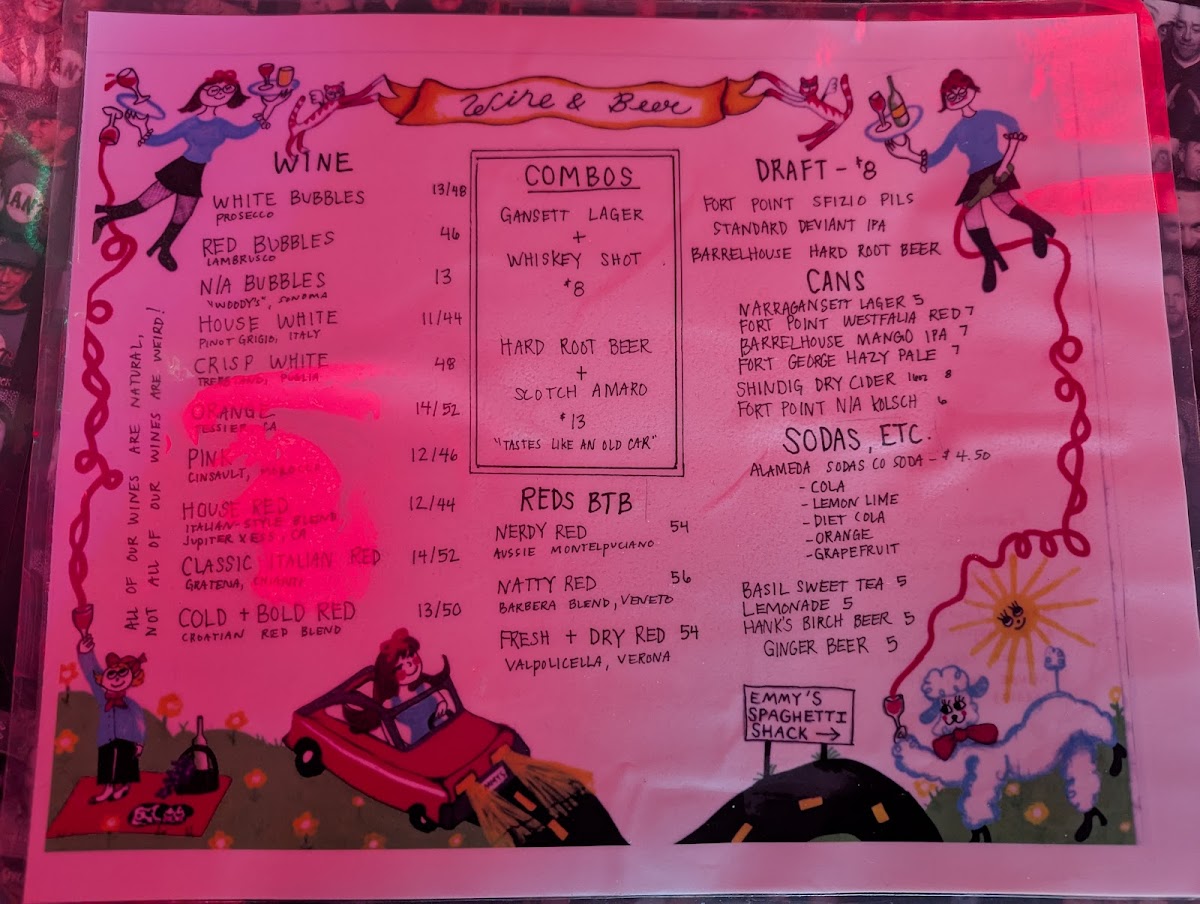 Wine & Beer
WINE
WHITE BUBBLES 13/48
PROSECCO
RED BUBBLES 46
LAMBRUSCO
N/A BUBBLES 13
"WOODY'S", SONOMA
HOUSE WHITE 11/44
PINOT GRIGIO, ITALY
CRISP WHITE 48
PUGLIA
ORANGE 14/52
CA
PINK 12/46
CINSAULT, MOROCCO
HOUSE RED 12/44
ITALIAN-STYLE BLEND
JUPITER XERES, CA
CLASSIC ITALIAN RED 14/52
GRATENA, CHIANTI
COLD + BOLD RED 13/50
CROATIAN RED BLEND
ALL OF OUR WINES ARE NATURAL,
NOT ALL OF OUR WINES ARE WEIRD!
COMBOS
GANSETT LAGER
+
WHISKEY SHOT
$8
HARD ROOT BEER
+
SCOTCH AMARO
$13
"TASTES LIKE AN OLD CAR"
REDS BTB
NERDY RED 54
AUSSIE MONTELPUCIANO
NATTY RED 56
BARBERA BLEND, VENETO
FRESH + DRY RED 54
VALPOLICELLA, VERONA
DRAFT - $8
FORT POINT SFIZIO PILS
STANDARD DEVIANT IPA
BARRELHOUSE HARD ROOT BEER
CANS
NARRAGANSETT LAGER 5
FORT POINT WESTFALIA RED 7
BARRELHOUSE MANGO IPA 7
FORT GEORGE HAZY PALE 7
SHINDIG DRY CIDER 16oz 8
FORT POINT N/A KOLSCH 6
SODAS, ETC.
ALAMEDA SODAS CO SODA - $4.50
- COLA
- LEMON LIME
- DIET COLA
- ORANGE
- GRAPEFRUIT
BASIL SWEET TEA 5
LEMONADE 5
HANK'S BIRCH BEER 5
GINGER BEER 5
EMMY'S
SPAGHETTI
SHACK →